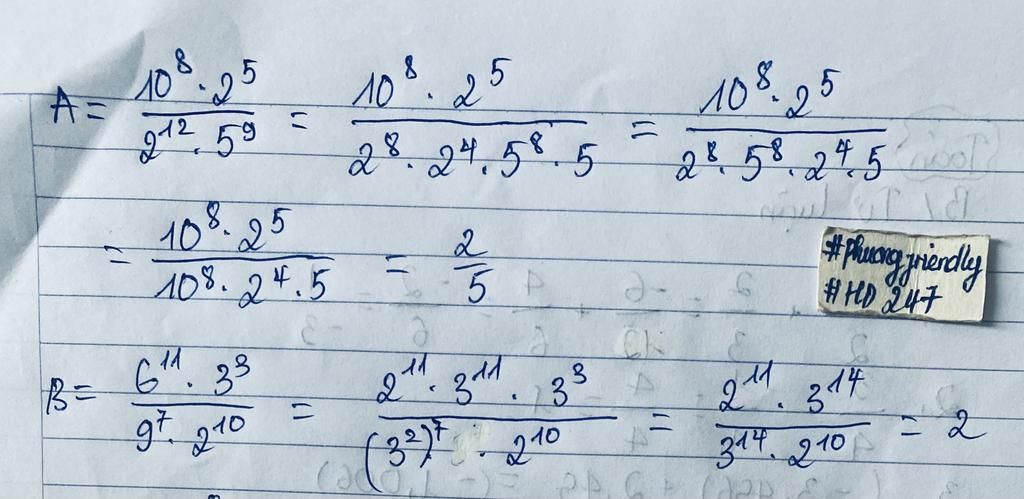 A = \frac{10^8 \cdot 2^5}{2^{12} \cdot 5^9} = \frac{10^8 \cdot 2^5}{2^8 \cdot 2^4 \cdot 5^8 \cdot 5} = \frac{10^8 \cdot 2^5}{2^8 \cdot 5^8 \cdot 2^4 \cdot 5}
= \frac{10^8 \cdot 2^5}{10^8 \cdot 2^4 \cdot 5} = \frac{2}{5}
#phuongfriendly
#HD 247
B = \frac{6^{11} \cdot 3^3}{9^7 \cdot 2^{10}} = \frac{2^{11} \cdot 3^{11} \cdot 3^3}{(3^2)^7 \cdot 2^{10}} = \frac{2^{11} \cdot 3^{14}}{3^{14} \cdot 2^{10}} = 2